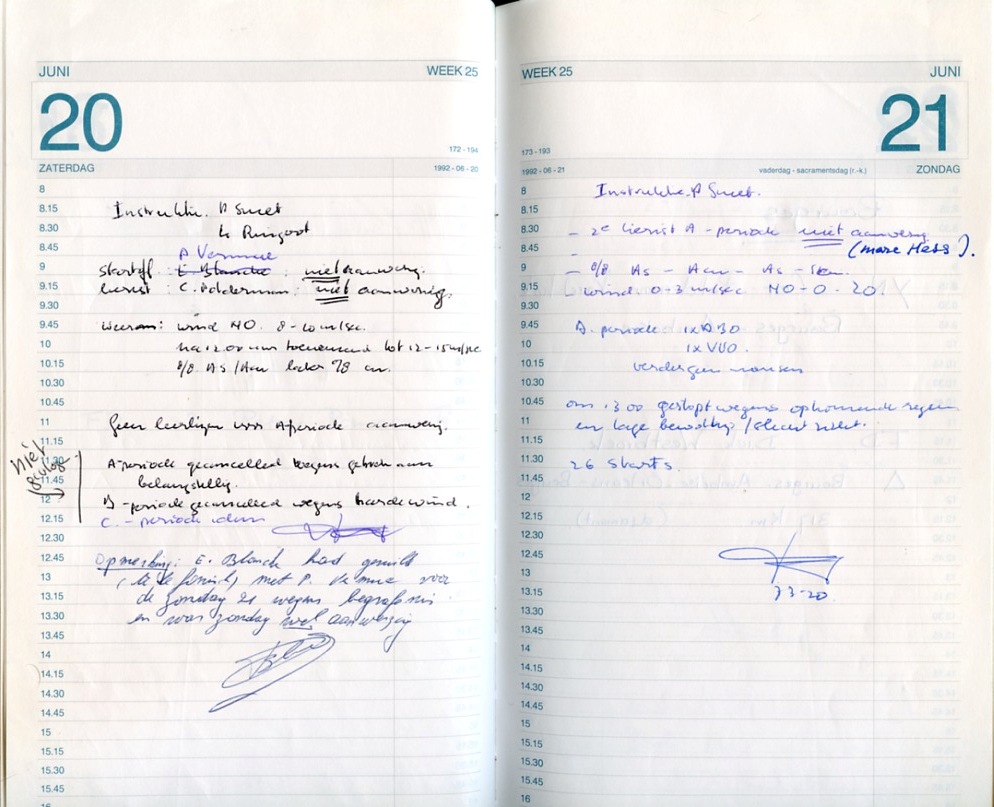 JUNI WEEK 25
20
172 - 194
ZATERDAG 1992 - 06 - 20
8
8.15 Instruktie. P Smet
8.30 L. Ringoot
8.45 P Vermue
9 Startoff E Blancke : niet aanwezig.
9.15 lierist : C. Polderman : niet aanwezig.
9.30
9.45 Weeram: wind NO. 8-10 m/sec.
10 na 12.00 uur toenemend tot 12-15 m/sec
10.15 8/8 As/Acu later 7/8 cu.
10.30
10.45
11 Geen leerlingen voor A periode aanwezig.
11.15
niet
11.30 A-periode gecancelled wegens gebrek aan
11.45 belangstelling.
12 B-periode gecancelled wegens harde wind.
12.15 C.-periode idem
12.30
12.45 Opmerking: E. Blanck had geruild
13 met P. Vermue voor
13.15 de zondag 21 wegens begrafenis
13.30 en was zondag wel aanwezig
13.45
14
14.15
14.30
14.45
15
15.15
15.30
15.45
WEEK 25 JUNI
21
173 - 193
1992 - 06 - 21 vaderdag - sacramentsdag (r.-k.) ZONDAG
8 Instruktie. P Smet.
8.15
8.30 - 2e lierist A-periode niet aanwezig
8.45 - (marc Hess).
9 - 8/8 As - Acu - As -
9.15 - wind 0-3 m/sec NO-O-ZO.
9.30
9.45 B. periode 1xA30
10 1x VUO.
10.15 verder geen mensen
10.30
10.45 om 1300 gestopt wegens opkomende regen
11 en lage bewolking/slecht zicht.
11.15
11.30 26 starts.
11.45
12
12.15
12.30
12.45
13
13.15
13.30
13.45
14
14.15
14.30
14.45
15
15.15
15.30
15.45
16